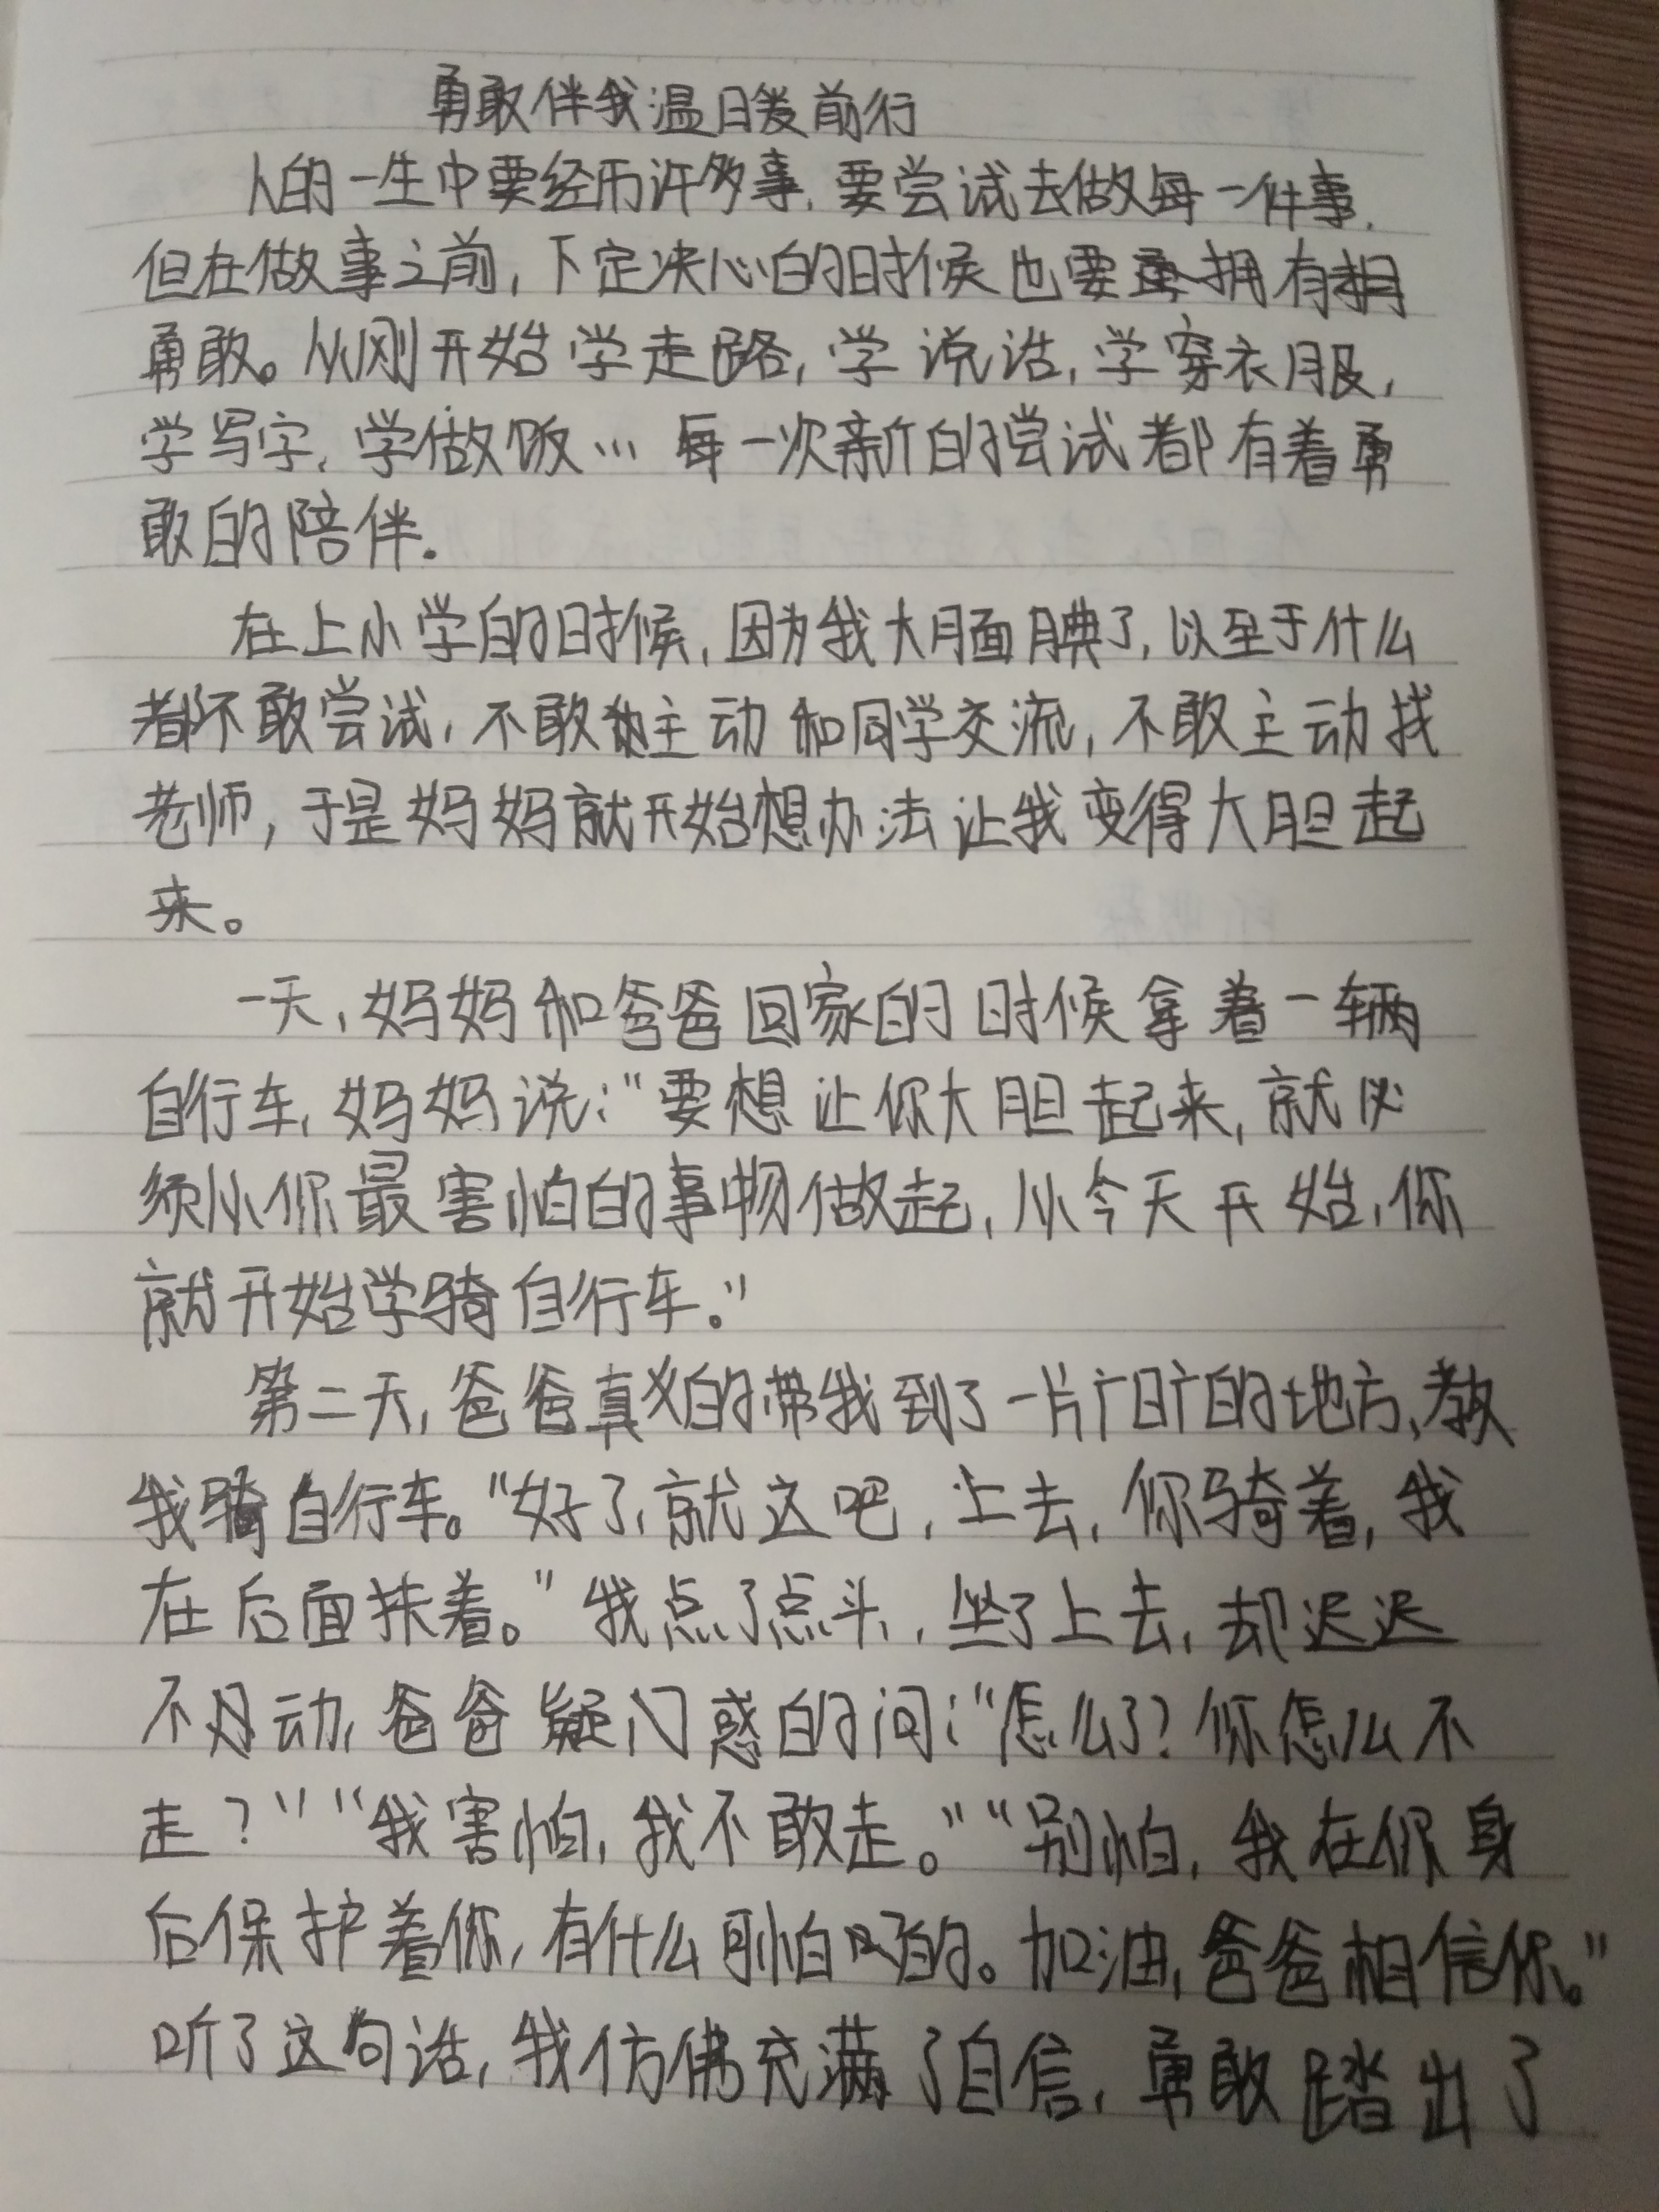 勇敢伴我温暖前行
人的一生中要经历许多事,要尝试去做每一件事,
但在做事之前,下定决心的时候也要拥有
勇敢。从刚开始学走路,学说话,学穿衣服,
学写字,学做饭…每一次新的尝试都有着勇
敢的陪伴.
在上小学的时候,因为我大腼腆了,以至于什么
都不敢尝试,不敢主动和同学交流,不敢主动找
老师,于是妈妈就开始想办法让我变得大胆起
来。
一天,妈妈和爸爸回家的时候拿着一辆
自行车,妈妈说:“要想让你大胆起来,就必
须从你最害怕的事物做起,从今天开始,你
就开始学骑自行车。”
第二天,爸爸真的带我到了一片广旷的地方,教
我骑自行车。“好了,就这吧,上去,你骑着,我
在后面扶着。”我点了点头,坐了上去,却迟迟
不动,爸爸疑惑的问:“怎么了?你怎么不
走?”“我害怕,我不敢走。”“别怕,我在你身
后保护着你,有什么可怕的。加油,爸爸相信你。”
听了这句话,我仿佛充满了自信,勇敢踏出了